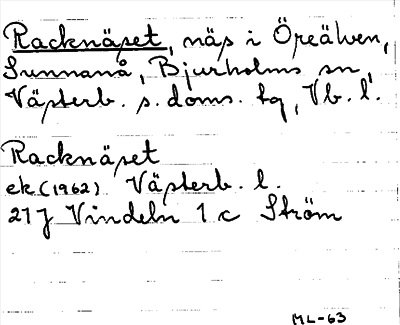 Racknäset, näs i Öreälven,
Sunnanå, Bjurholms sn
Västerb. s. doms. tg, Vb. l.
Racknäset
ek (1962) Västerb. l.
21J Vindeln 1 c Ström
ML-63